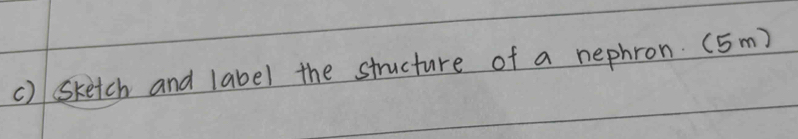 c) Sketch and label the structure of a nephron. (5m)